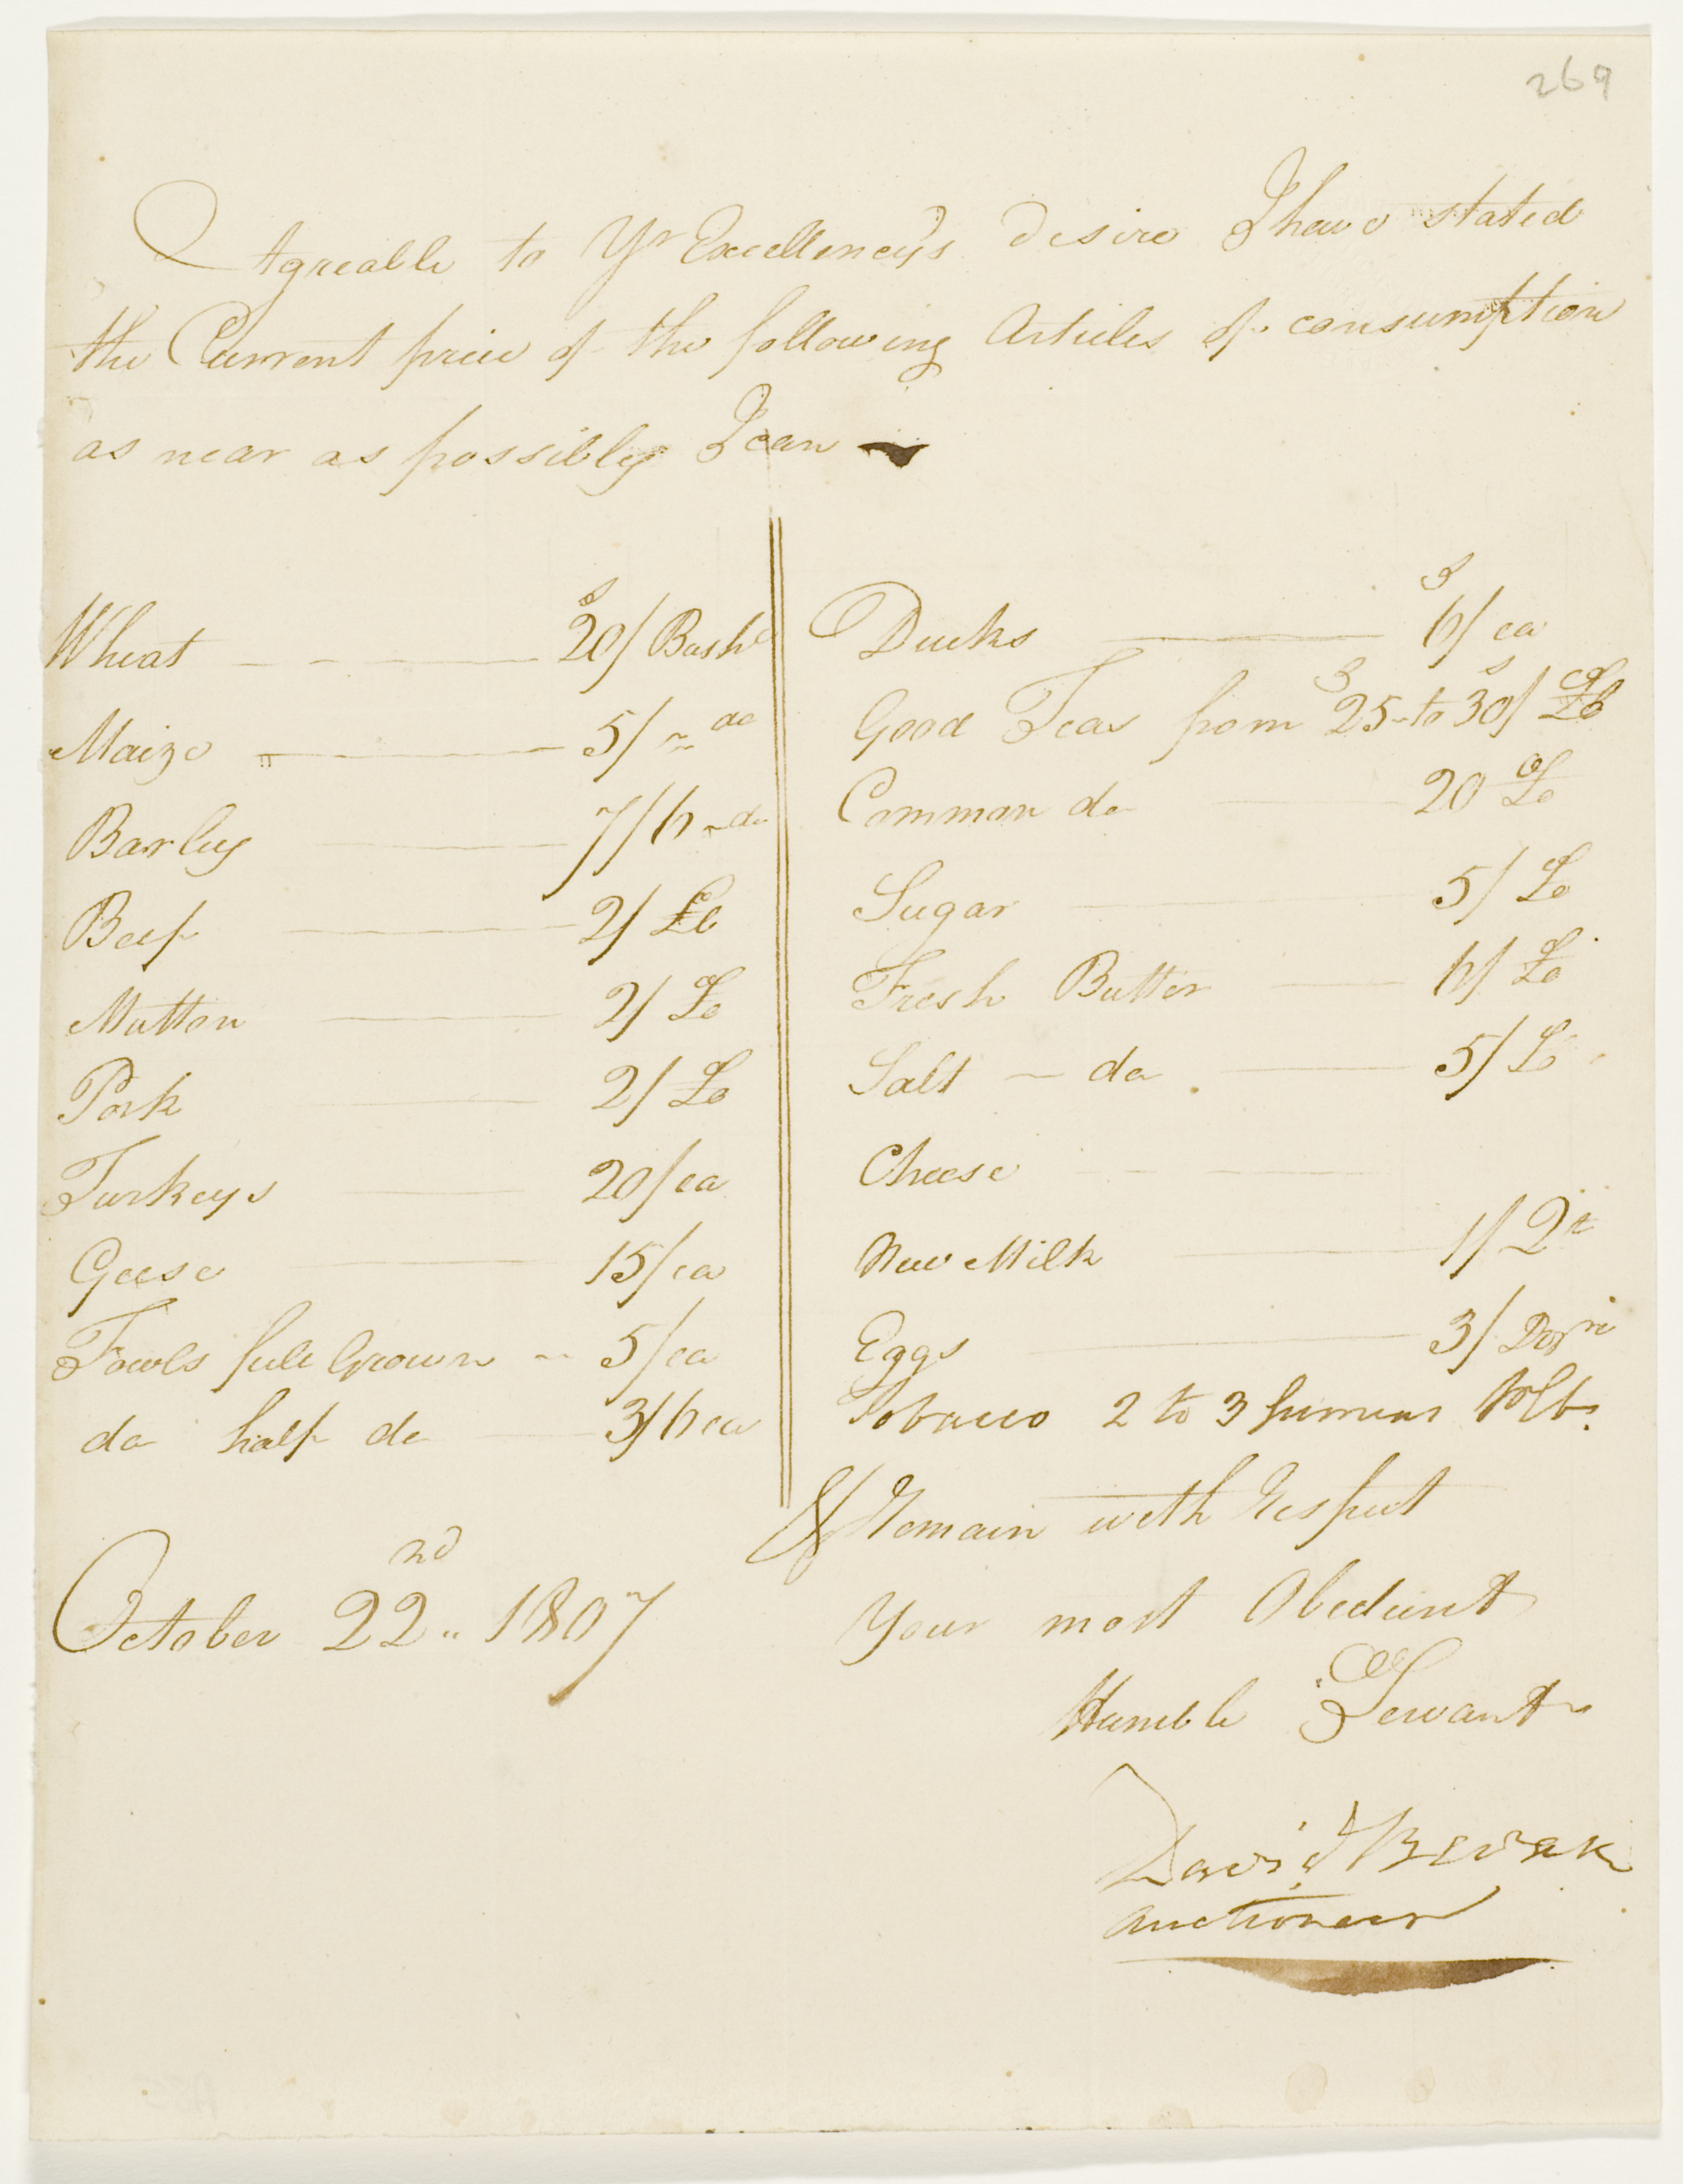 269
Agreable to Yr Excellency's desire I have stated
the Current price of the following Articles of consumption
as near as possibly I can
Wheat 20s/ Bushl
Maize 5/ do
Barley 7/6 do
Beef 2/ Lb
Mutton 2/ Lb
Pork 2/ Lb
Turkeys 20/ ea
Geese 15/ ea
Fowls full Grown 5/ ea
do half do 3/6 ea
October 22nd 1807
Ducks 6s/ ea
Good Tea from 25s to 30s/ Lb
Common do 20 Lb
Sugar 5/ Lb
Fresh Butter 6/ Lb
Salt do 5/ Lb
Cheese
New Milk 1/ Qt
Eggs 3/ Dozn
Tobacco 2 to 3 pr lb.
& Remain with Respect
Your most Obedient
Humble Servant
David Bevan
Auctioneer